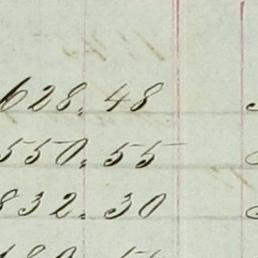 628.48
550.55
832.30